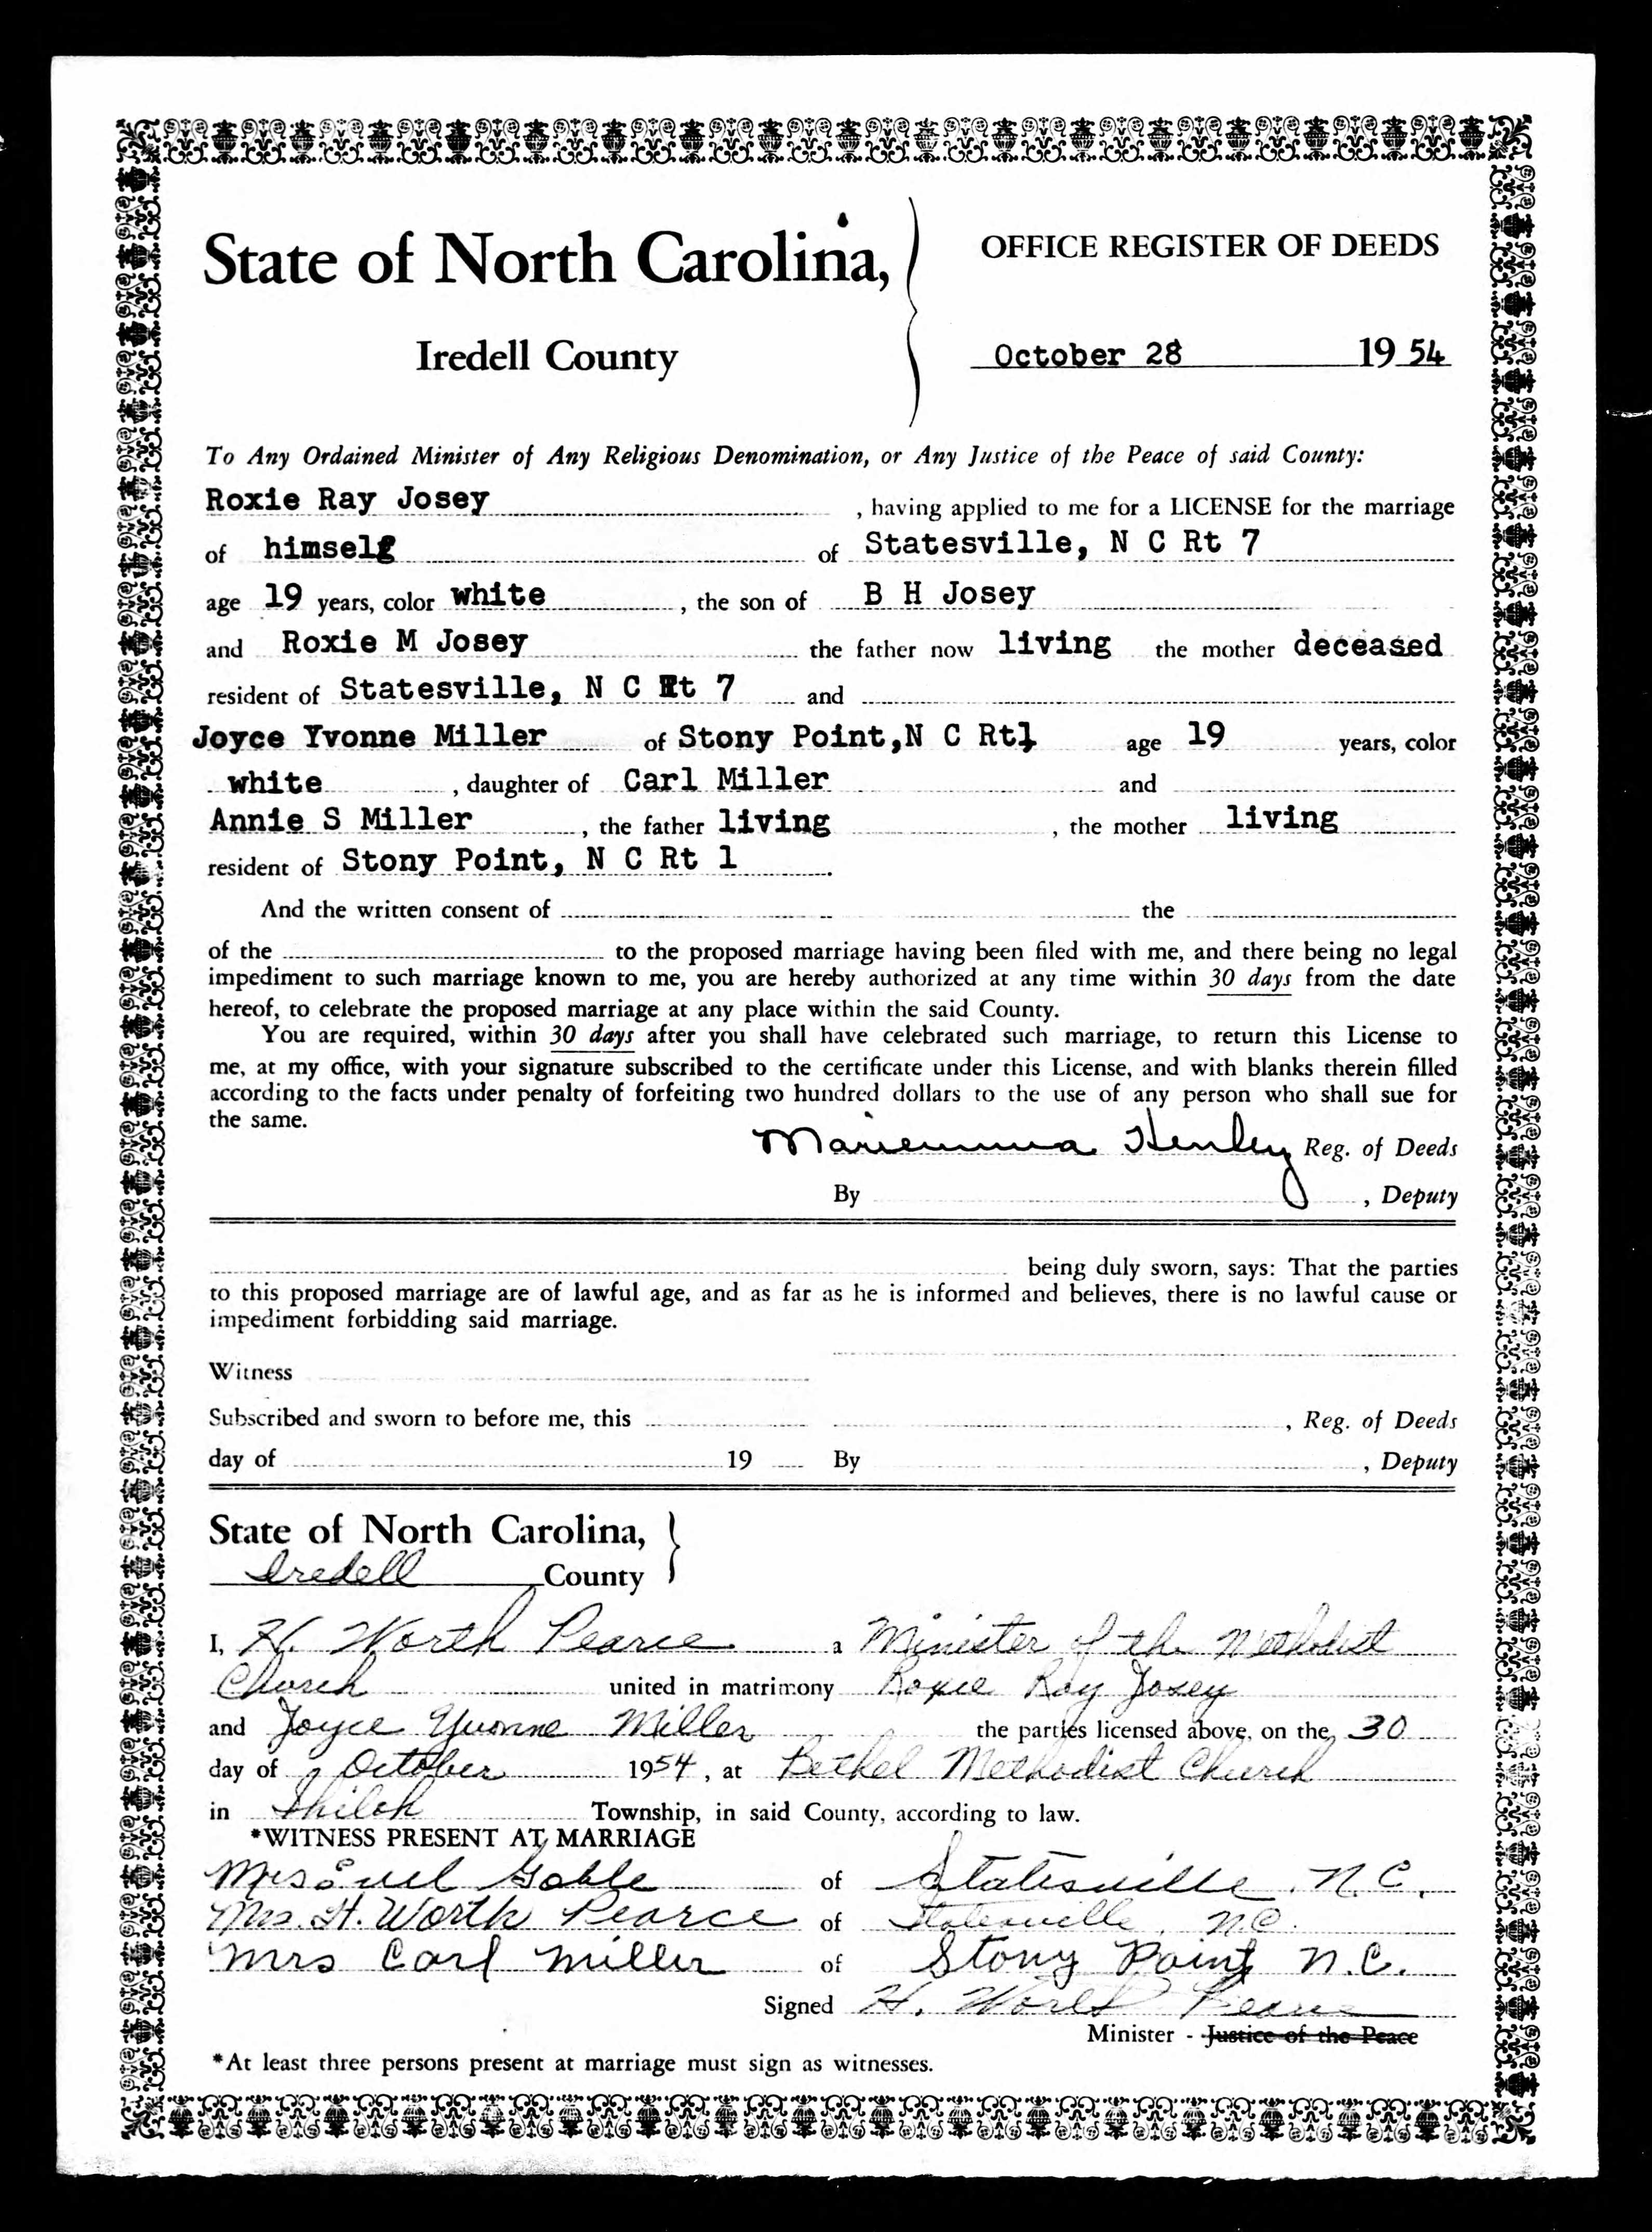 State of North Carolina,
Iredell County
OFFICE REGISTER OF DEEDS
October 28 19 54
To Any Ordained Minister of Any Religious Denomination, or Any Justice of the Peace of said County:
Roxie Ray Josey , having applied to me for a LICENSE for the marriage
of himself of Statesville, N C Rt 7
age 19 years, color white , the son of B H Josey
and Roxie M Josey the father now living the mother deceased
resident of Statesville, N C Rt 7 and
Joyce Yvonne Miller of Stony Point,N C Rt1 age 19 years, color
white , daughter of Carl Miller and
Annie S Miller , the father living , the mother living
resident of Stony Point, N C Rt 1 .
And the written consent of the
of the to the proposed marriage having been filed with me, and there being no legal
impediment to such marriage known to me, you are hereby authorized at any time within 30 days from the date
hereof, to celebrate the proposed marriage at any place within the said County.
You are required, within 30 days after you shall have celebrated such marriage, to return this License to
me, at my office, with your signature subscribed to the certificate under this License, and with blanks therein filled
according to the facts under penalty of forfeiting two hundred dollars to the use of any person who shall sue for
the same.
Mariemma Henley Reg. of Deeds
By , Deputy
being duly sworn, says: That the parties
to this proposed marriage are of lawful age, and as far as he is informed and believes, there is no lawful cause or
impediment forbidding said marriage.
Witness
Subscribed and sworn to before me, this , Reg. of Deeds
day of 19 By , Deputy
State of North Carolina,
Iredell County
I, H. Worth Pearce a Minister of the Methodist
Church united in matrimony Roxie Ray Josey
and Joyce Yvonne Miller the parties licensed above, on the 30
day of October 1954 , at Bethel Methodist Church
in Shiloh Township, in said County, according to law.
*WITNESS PRESENT AT MARRIAGE
Mrs Goble of Statesville, N.C.
Mrs. H. Worth Pearce of Statesville, N.C.
Mrs Carl Miller of Stony Point N.C.
Signed H. Worth Pearce
Minister - Justice of the Peace
*At least three persons present at marriage must sign as witnesses.